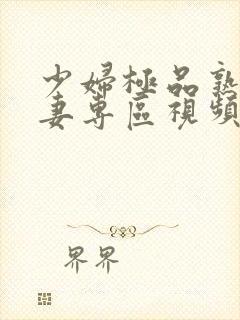 少婦極品熟
妻專區視頻
界界